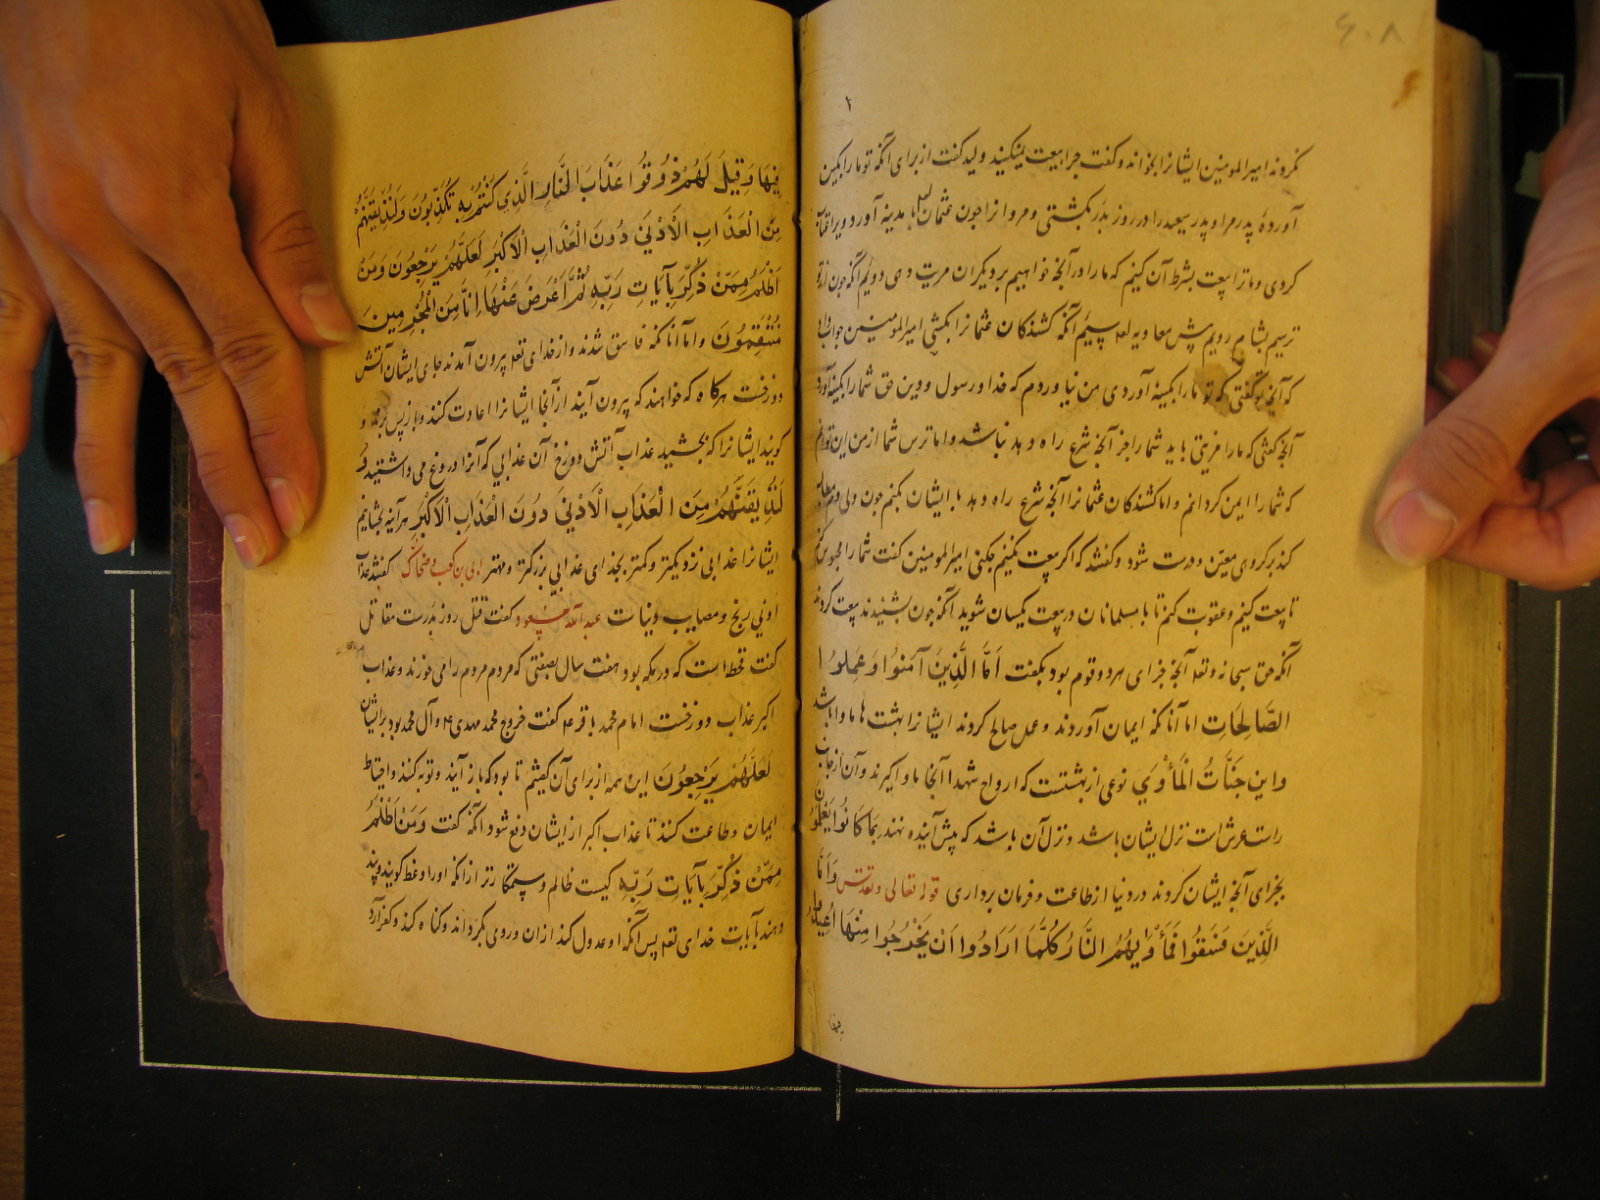 ۶۰۸
نکردند امیرالمومنین ایشانرا بخواند و گفت چرا بیعت نمیکنید ولید گفت از برای آنکه تو ما را بکین
آوردهٔ پدر مرا و پدر سعید را در روز بدر بکشتی و مروانرا چون عثمان بمدینه آورد ویرا
کردی و ما ترا بیعت بشرط آن کنیم که ما را در آنچه خواهیم بر دیگران مزیت دهی دویم آنکه چون از تو
ترسیم بشام رویم پیش معاویه لعنه سیّم آنکه کشندکان عثمانرا بکشی امیرالمومنین جواب داد
که آنچه تو گفتی که تو ما را بکینه آوردی من نیاوردم که خدا و رسول و دین حق شما را بکینه آورد
آنچه گفتی که ما را مزیتی باید شما را جز آنچه شرع راه دهد نباشد و اما ترس شما از من این توانم
که شما را ایمن کردانم و اما کشندکان عثمانرا آنچه شرع راه دهد با ایشان بکنم چون ولی دم مطالبه
کند بر کروی معیّن و درست شود و گفتند که اگر بیعت نکنیم چکنی امیرالمومنین گفت شما را محبوس کنم
تا بیعت کنیم و عقوبت کنم تا با مسلمانان در بیعت یکسان شوید آنگه چون بشنیدند بیعت کردند
آنگه حق سبحانه و تعه آنچه جزای هر دو قوم بود بگفت اَمَّا الَّذِینَ آمَنُوا وَعَمِلُوا
الصَّالِحَاتِ اما آنانکه ایمان آوردند و عمل صالح کردند ایشانرا بهشت ها ماوا باشد
و این جَنَّاتُ الْمَأْوَی نوعی از بهشتست که ارواح شهدا آنجا ماوا گیرند و آن از جانب
راست عرش است نزل ایشان باشد و نزل آن باشد که پیش آینده نهند بِمَا کَانُوا یَعْمَلُونَ
بجزای آنچه ایشان کردند در دنیا از طاعت و فرمان برداری قوله تعالی و تقدس وَاَمَّا
الَّذِینَ فَسَقُوا فَمَأْوٰیهُمُ النَّارُ کُلَّمَا اَرَادُوا اَنْ یَخْرُجُوا مِنْهَا اُعِیدُوا
فیها
فِیهَا وَقِیلَ لَهُمْ ذُوقُوا عَذَابَ النَّارِ الَّذِی کُنْتُمْ بِهِ تُکَذِّبُونَ وَلَنُذِیقَنَّهُمْ
مِنَ الْعَذَابِ الْاَدْنَی دُونَ الْعَذَابِ الْاَکْبَرِ لَعَلَّهُمْ یَرْجِعُونَ وَمَنْ
اَظْلَمُ مِمَّنْ ذُکِّرَ بِآیَاتِ رَبِّهِ ثُمَّ اَعْرَضَ عَنْهَا اِنَّا مِنَ الْمُجْرِمِینَ
مُنْتَقِمُونَ و اما آنانکه فاسق شدند و از خدای تعه بیرون آمدند جای ایشان آتش
دوزخست هرکاه که خواهند که بیرون آیند از آنجا ایشانرا اعادت کنند و باز پس برند و
کویند ایشانرا که بچشید عذاب آتش دوزخ آن عذابی که آنرا دروغ می داشتید وَ
لَنُذِیقَنَّهُمْ مِنَ الْعَذَابِ الْاَدْنَی دُونَ الْعَذَابِ الْاَکْبَرِ هر آینه بچشانیم
ایشانرا عذابی نزدیکتر و کمتر بجذای عذابی بزرکتر و مهتر ابی بن کعب و ضحاک گفتند عذاب
ادنی رنج و مصایب دنیاست عبدالله مسعود گفت قتل روز بدرست مقاتل
گفت قحط است که در مکه بود هفت سال بصفتی که مردم مردم را می خوردند و عذاب
اکبر عذاب دوزخست امام محمد باقر ع گفت خروج محمد مهدی ع و آل محمد بود بر ایشان
لَعَلَّهُمْ یَرْجِعُونَ این همه از برای آن کفتم تا بود که باز آیند و توبه کنند و احتیاط
ایمان و طاعت کنند تا عذاب اکبر از ایشان دفع شود آنگه گفت وَمَنْ اَظْلَمُ
مِمَّنْ ذُکِّرَ بِآیَاتِ رَبِّهِ کیست ظالم و ستمکار تر از آنکه او را وعظ کویند و پند
دهند بآیات خدای تعه پس آنگه او عدول کند از آن و روی بگرداند و کناه کند و کفر آرد